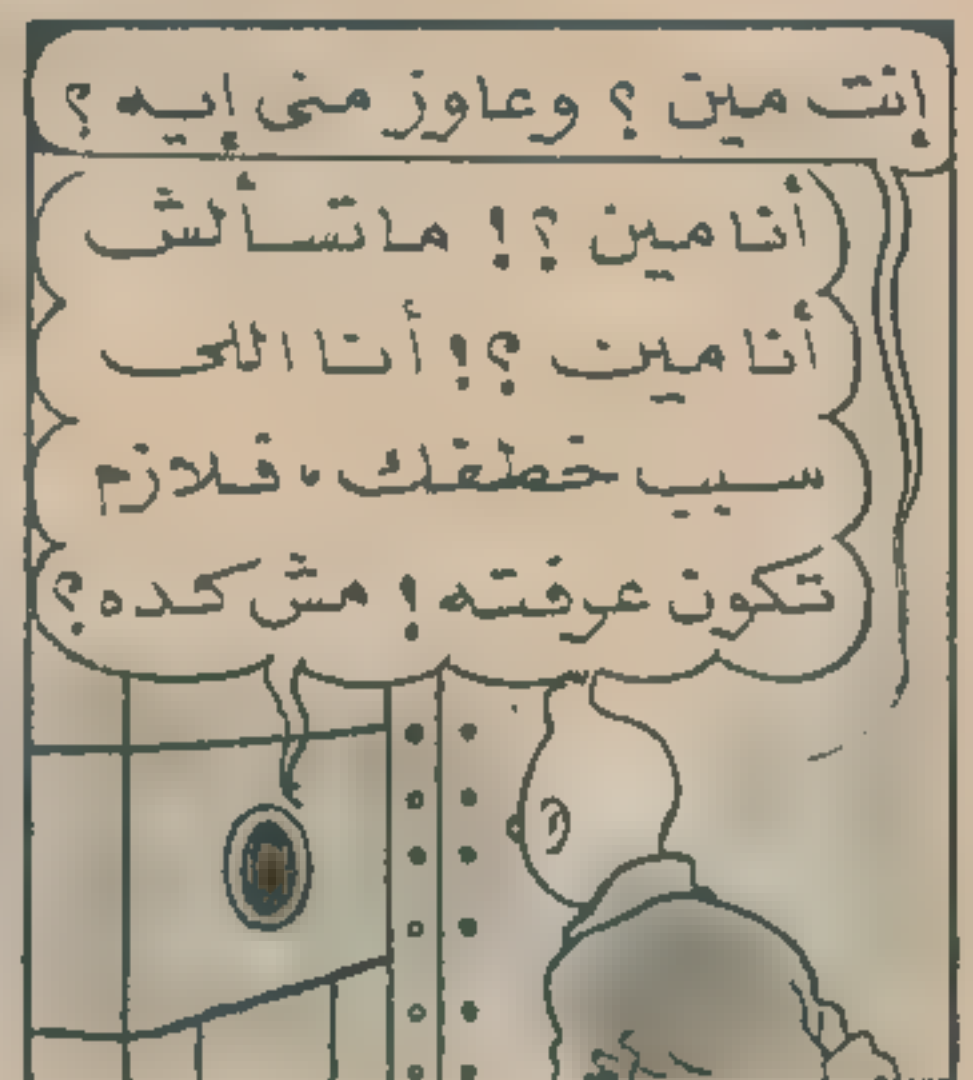 إنت مين ؟ وعاوز منى إيه ؟
أنا مين ؟! ما تسألش
أنا مين ؟! أنا اللى
سيب خطفك ، فلازم
تكون عرفته ! مش كده ؟